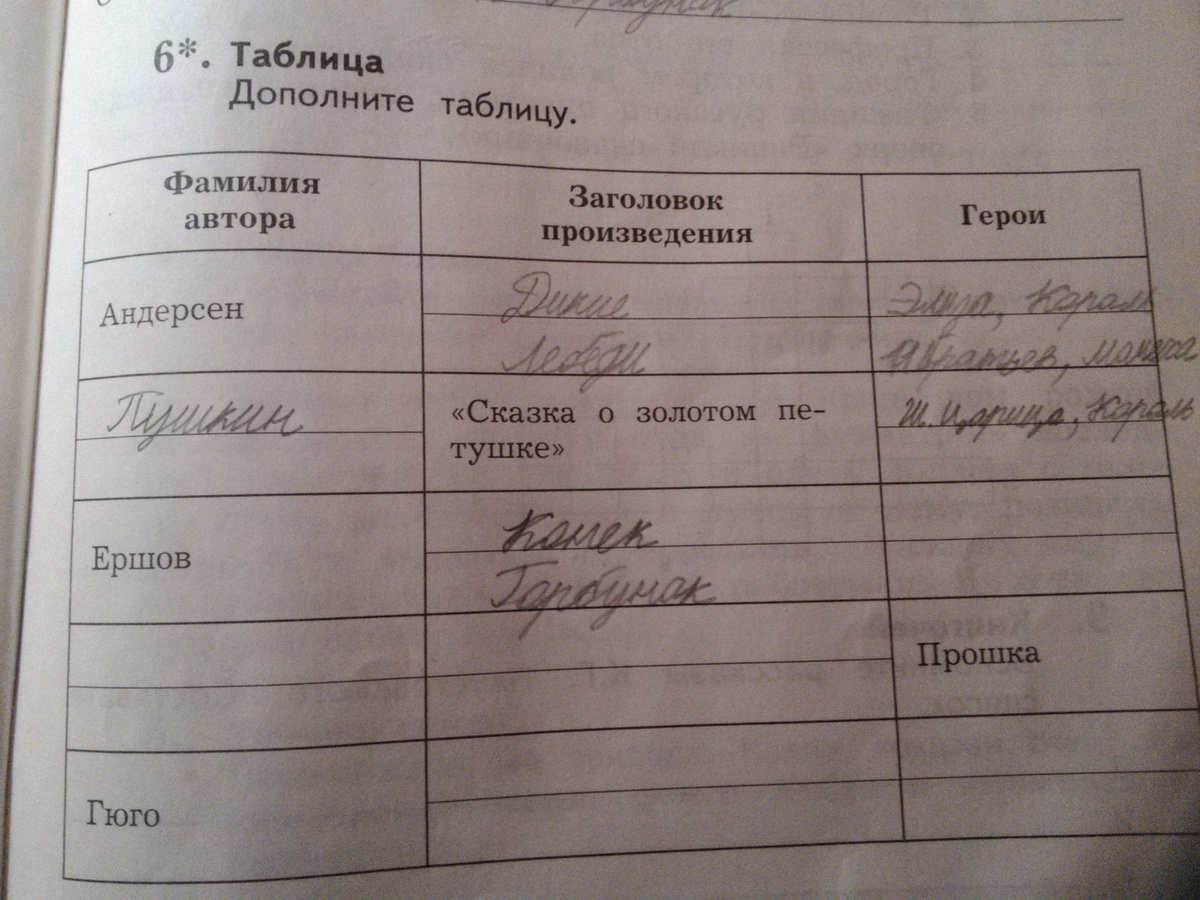 6*. Таблица
Дополните таблицу.
Фамилия автора
Заголовок произведения
Герои
Андерсен
Дикие
Лебеди
Элиза, Король
11 братьев, мачеха
Пушкин
«Сказка о золотом пе-
тушке»
Ш. Царица, Король
Ершов
Конек
Горбунак
Прошка
Гюго